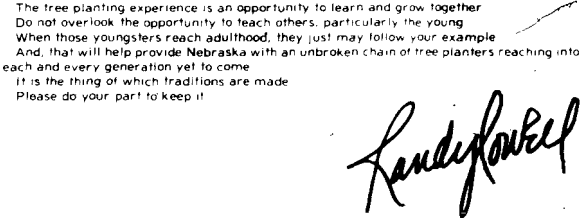 The tree planting experience is an opportunity to learn and grow together
Do not overlook the opportunity to teach others, particularly the young
When those youngsters reach adulthood, they just may follow your example
And, that will help provide Nebraska with an unbroken chain of tree planters reaching into
each and every generation yet to come
It is the thing of which traditions are made
Please do your part to keep it
Randy